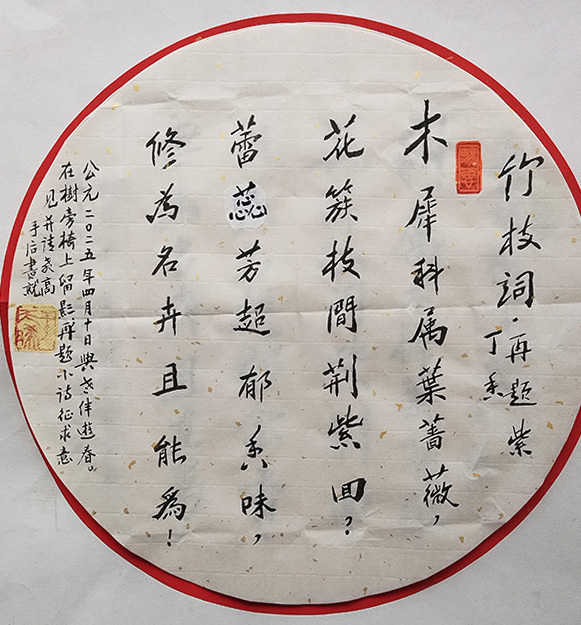 竹枝詞·再題紫
丁香
木犀科属葉薔薇，
花簇枝間荆紫回？
蕾蕊芳超郁香味，
修為名卉且能為！
公元二０二五年四月十日與老伴遊春。
在樹旁椅上留影再題小詩征求意
見并請亮高
手后書就